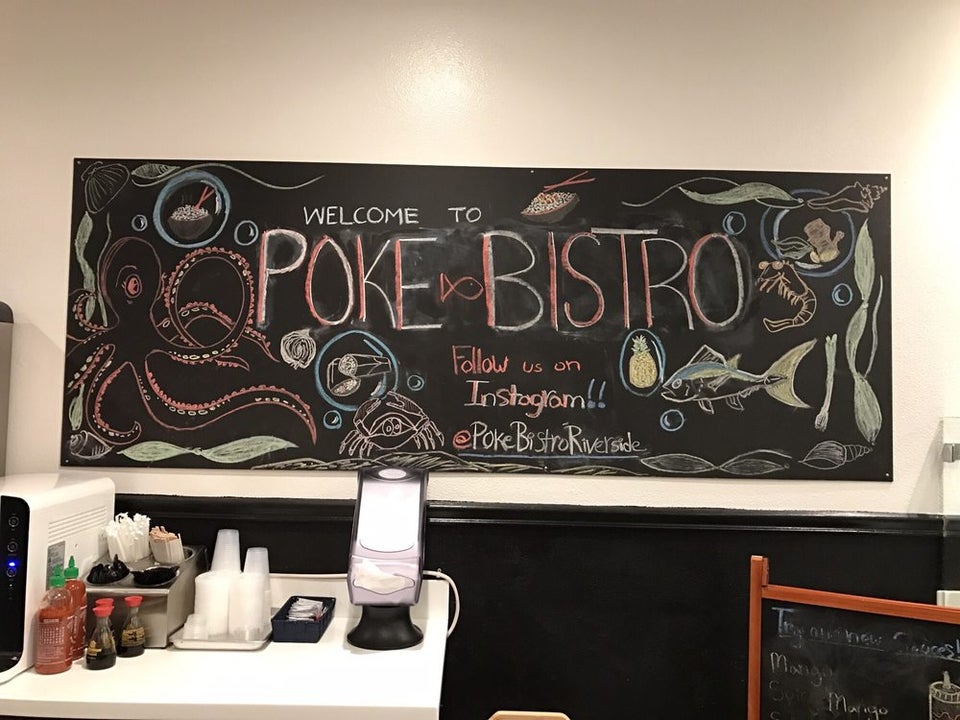 WELCOME TO
POKE BISTRO
Follow us on
Instagram!!
@PokeBistroRiverside
Try our new Sauces!
Mango
Spicy Mango